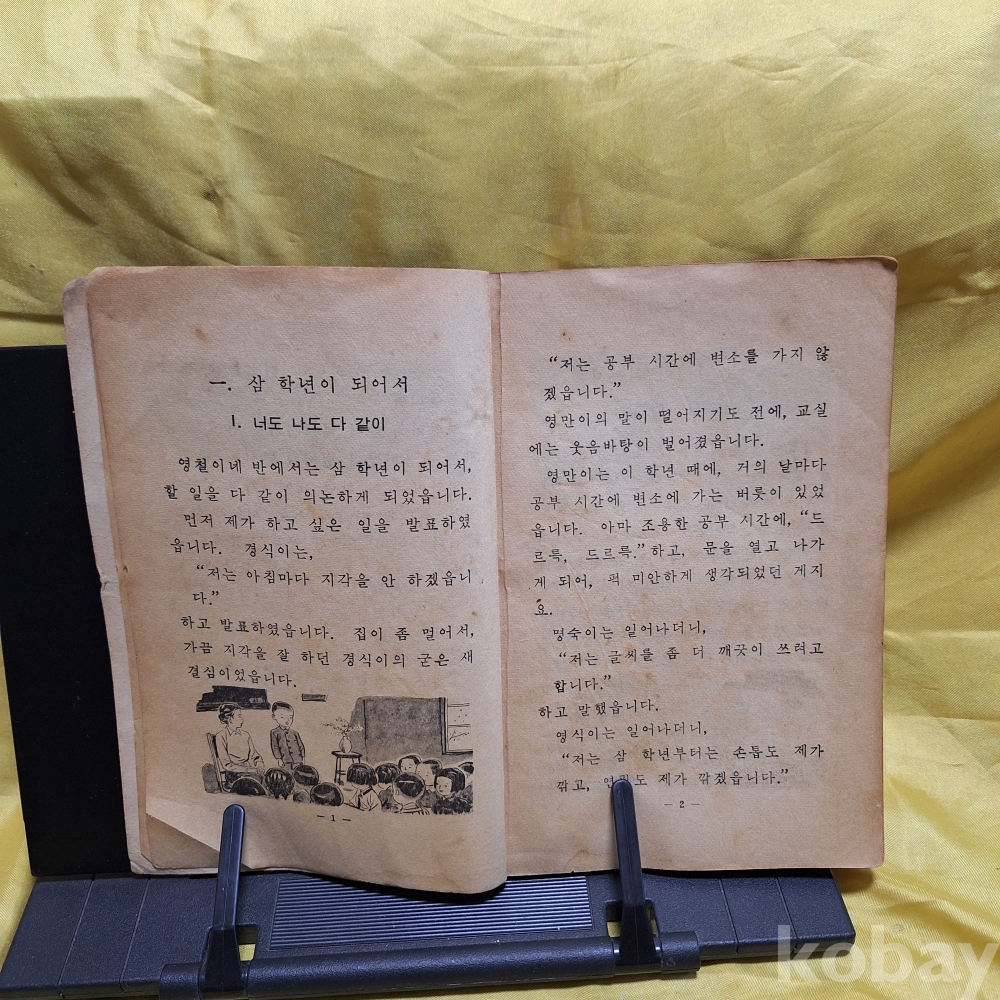 一. 삼 학년이 되어서
1. 너도 나도 다 같이
영철이네 반에서는 삼 학년이 되어서,
할 일을 다 같이 의논하게 되었읍니다.
먼저 제가 하고 싶은 일을 발표하였
읍니다. 경식이는,
“저는 아침마다 지각을 안 하겠읍니
다.”
하고 발표하였읍니다. 집이 좀 멀어서,
가끔 지각을 잘 하던 경식이의 굳은 새
결심이었읍니다.
— 1 —
“저는 공부 시간에 변소를 가지 않
겠읍니다.”
영만이의 말이 떨어지기도 전에, 교실
에는 웃음바탕이 벌어졌읍니다.
영만이는 이 학년 때에, 거의 날마다
공부 시간에 변소에 가는 버릇이 있었
읍니다. 아마 조용한 공부 시간에, “드
르륵, 드르륵.” 하고, 문을 열고 나가
게 되어, 퍽 미안하게 생각되었던 게지
요.
명숙이는 일어나더니,
“저는 글씨를 좀 더 깨끗이 쓰려고
합니다.”
하고 말했읍니다.
영식이는 일어나더니,
“저는 삼 학년부터는 손톱도 제가
깎고, 제가 깎겠읍니다.”
— 2 —
kobay